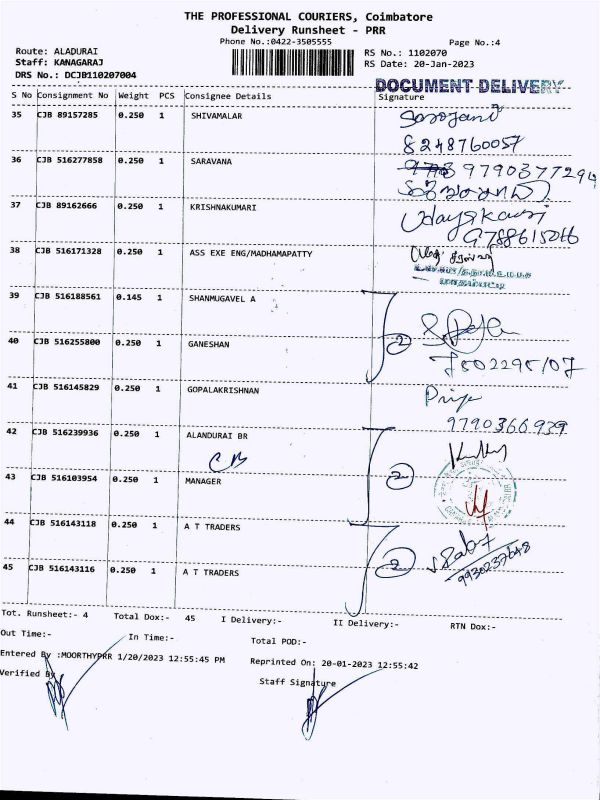 THE PROFESSIONAL COURIERS, Coimbatore
Delivery Runsheet - PRR
Phone No.:0422-3505555
Page No.:4
Route: ALADURAI
RS No.: 1102070
Staff: KANAGARAJ
RS Date: 20-Jan-2023
DRS No.: DCJB110207004
DOCUMENT DELIVERY
S No Consignment No Weight PCS Consignee Details Signature
35 CJB 89157285 0.250 1 SHIVAMALAR
8248760057
36 CJB 516277858 0.250 1 SARAVANA
9790377294
37 CJB 89162666 0.250 1 KRISHNAKUMARI
Udayakauri
9788615066
38 CJB 516171328 0.250 1 ASS EXE ENG/MADHAMAPATTY
39 CJB 516188561 0.145 1 SHANMUGAVEL A
2
40 CJB 516255800 0.250 1 GANESHAN
7502295107
41 CJB 516145829 0.250 1 GOPALAKRISHNAN
Priya
9790366939
42 CJB 516239936 0.250 1 ALANDURAI BR
CB
2
43 CJB 516103954 0.250 1 MANAGER
44 CJB 516143118 0.250 1 A T TRADERS
2
45 CJB 516143116 0.250 1 A T TRADERS
Tot. Runsheet:- 4 Total Dox:- 45 I Delivery:- II Delivery:- RTN Dox:-
Out Time:- In Time:- Total POD:-
Entered By :MOORTHYPRR 1/20/2023 12:55:45 PM Reprinted On: 20-01-2023 12:55:42
Verified By Staff Signature